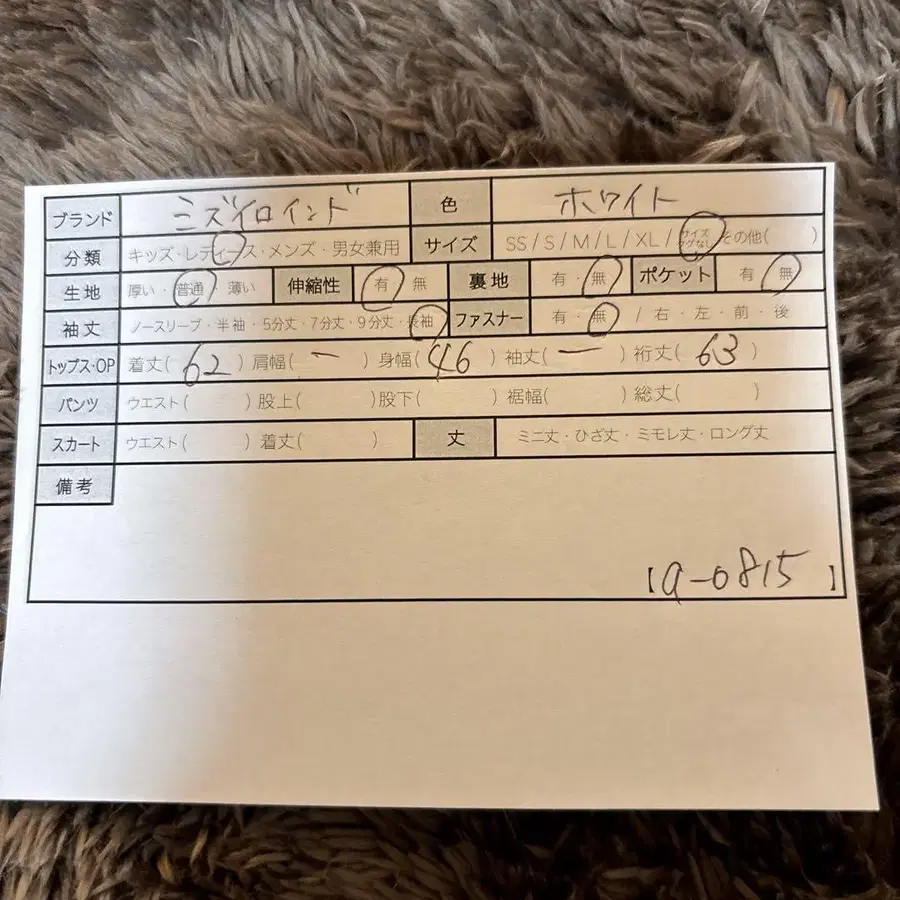 ブランド ミズイロインド 色 ホワイト
分類 キッズ・レディース・メンズ・男女兼用 サイズ SS / S / M / L / XL / サイズタグなし その他( )
生地 厚い・普通・薄い 伸縮性 有・無 裏地 有・無 ポケット 有・無
袖丈 ノースリーブ・半袖・5分丈・7分丈・9分丈・長袖 ファスナー 有・無 / 右・左・前・後
トップス・OP 着丈( 62 ) 肩幅( ー ) 身幅( 46 ) 袖丈( ー ) 裄丈( 63 )
パンツ ウエスト( ) 股上( ) 股下( ) 裾幅( ) 総丈( )
スカート ウエスト( ) 着丈( ) 丈 ミニ丈・ひざ丈・ミモレ丈・ロング丈
備考
【a-0815】